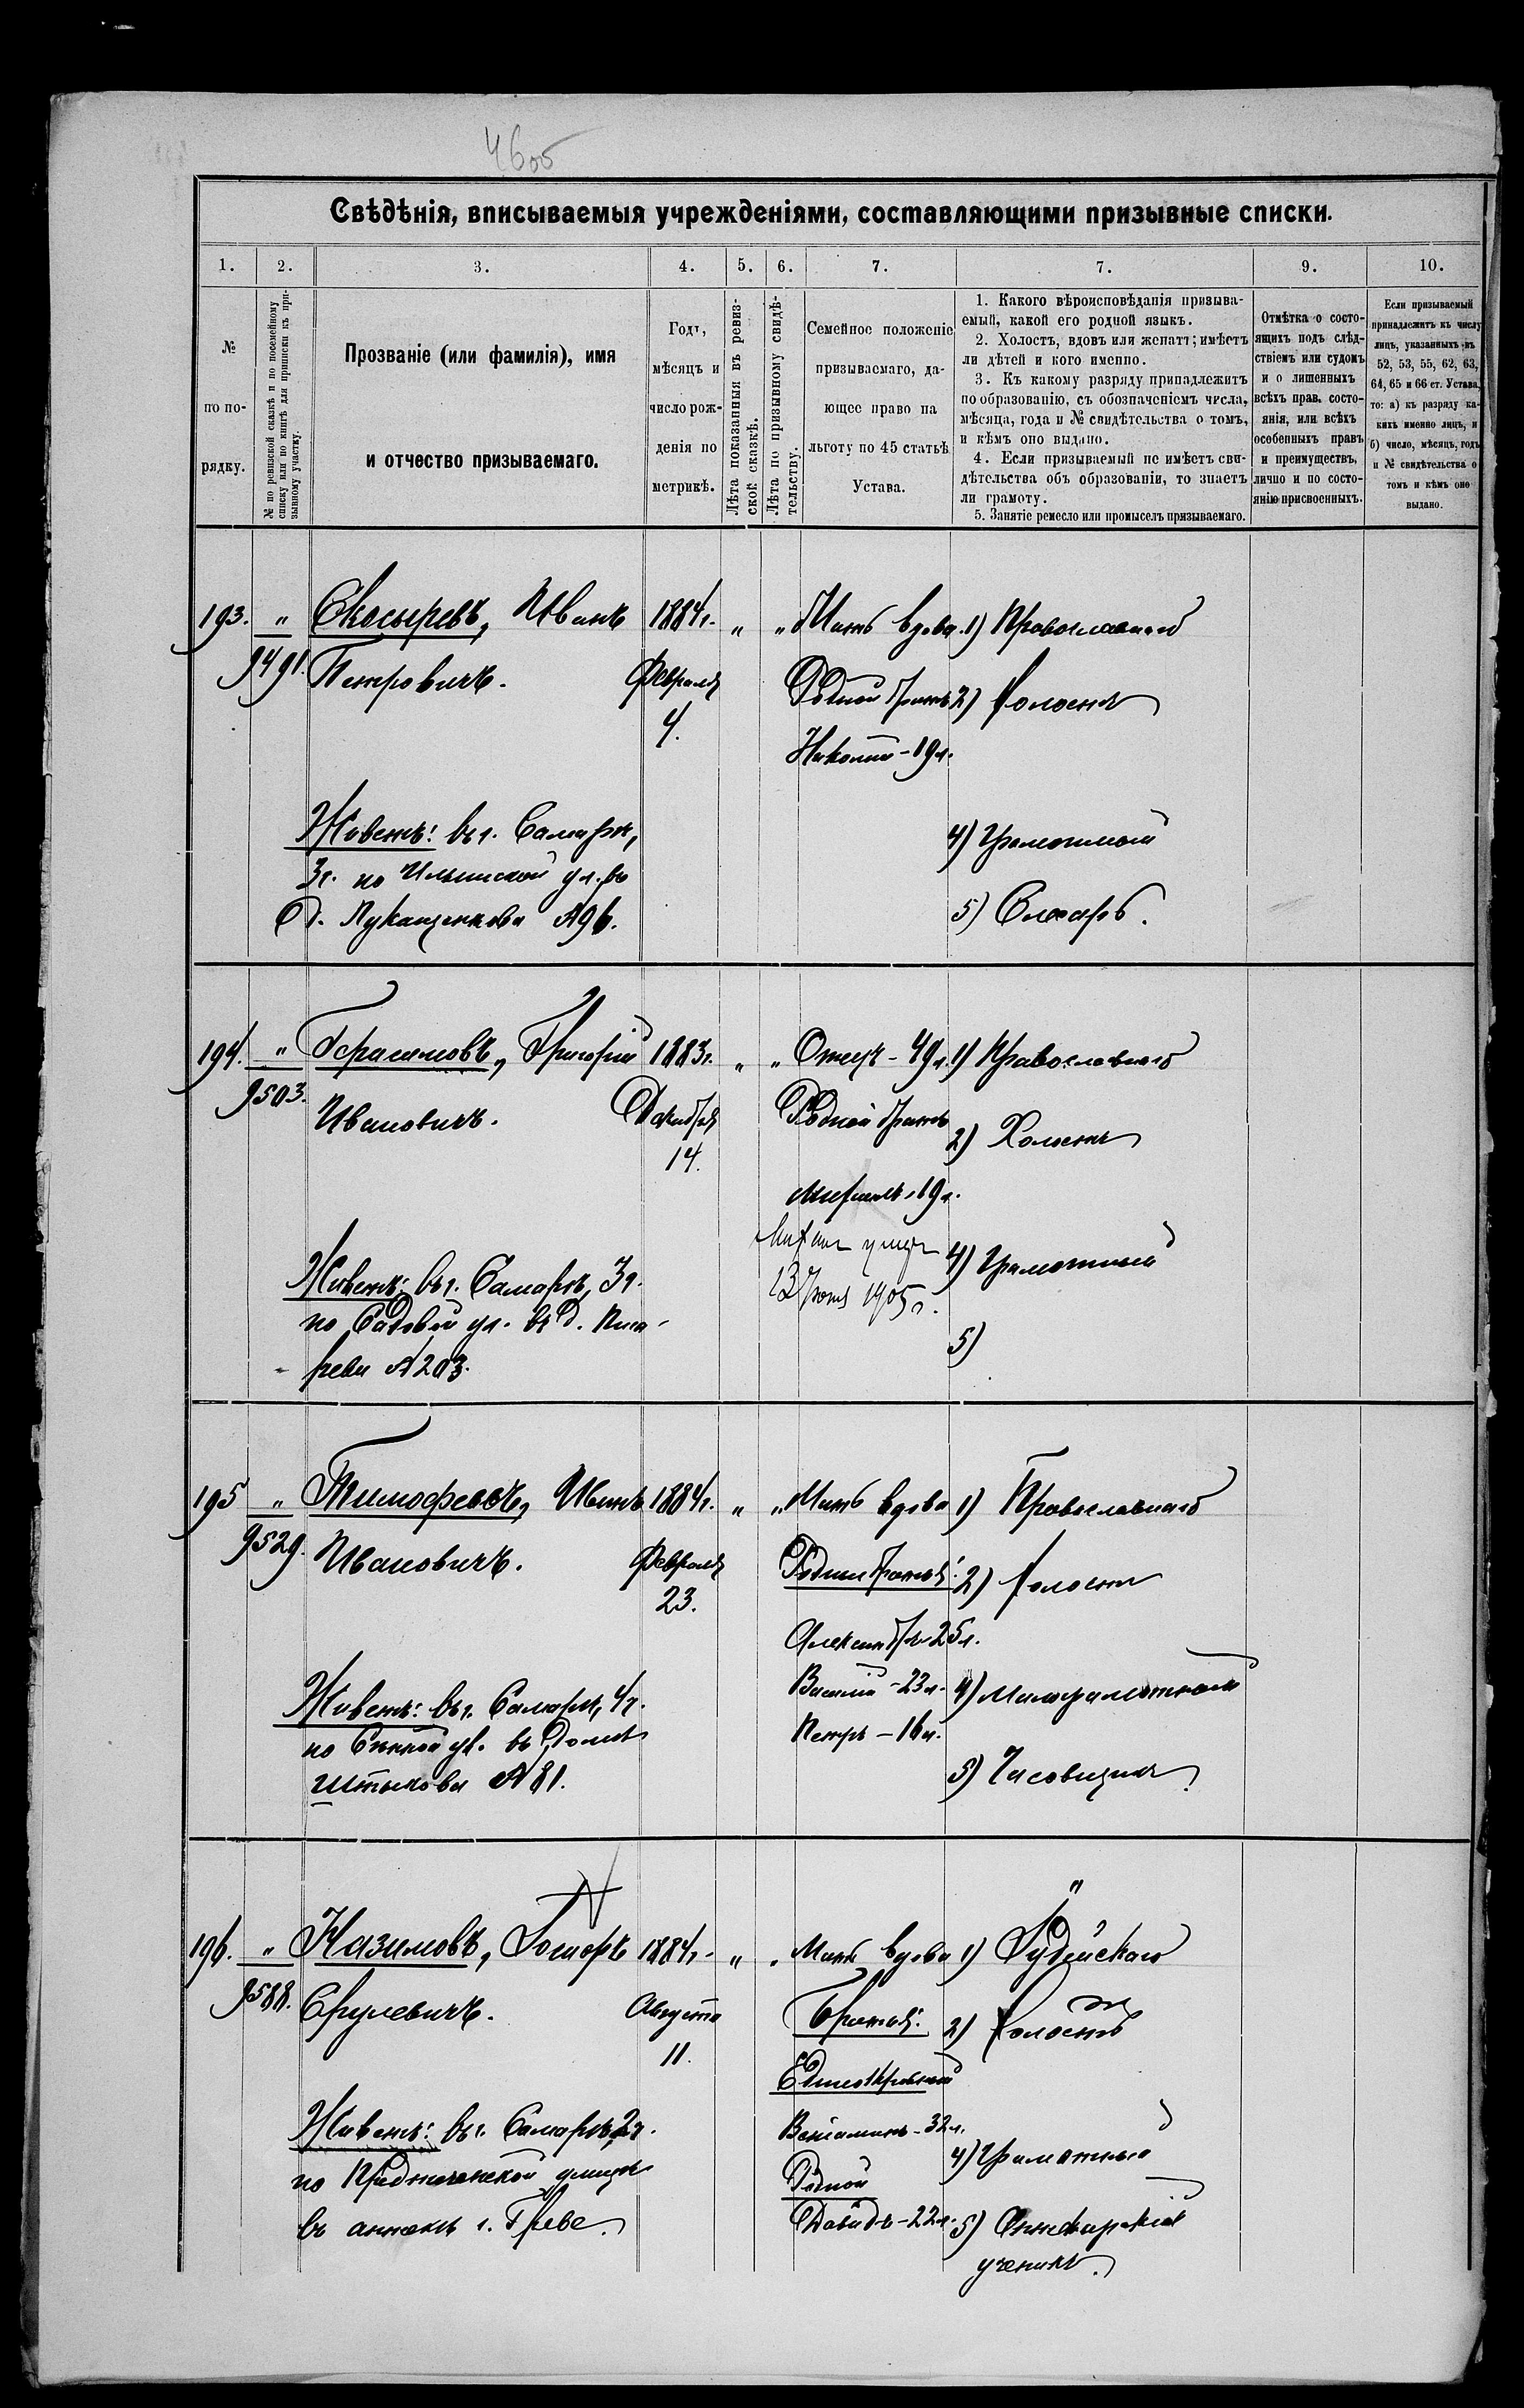 46об
Свѣдѣнія, вписываемыя учрежденіями, составляющими призывные списки.
1. 2. 3. 4. 5. 6. 7. 7. 9. 10.
№
по по-
рядку.
№ по ревизской сказкѣ и по посемейному
списку или по книгѣ для приписки къ при-
зывному участку.
Прозваніе (или фамилія), имя
и отчество призываемаго.
Годъ,
мѣсяцъ и
число рож-
денія по
метрикѣ.
Лѣта показанныя въ ревиз-
ской сказкѣ.
Лѣта по призывному свидѣ-
тельству.
Семейное положеніе
призываемаго, да-
ющее право на
льготу по 45 статьѣ
Устава.
1. Какого вѣроисповѣданія призыва-
емый, какой его родной языкъ.
2. Холостъ, вдовъ или женатъ; имѣетъ
ли дѣтей и кого именно.
3. Къ какому разряду принадлежитъ
по образованію, съ обозначеніемъ числа,
мѣсяца, года и № свидѣтельства о томъ,
и кѣмъ оно выдано.
4. Если призываемый не имѣетъ сви-
дѣтельства объ образованіи, то знаетъ
ли грамоту.
5. Занятіе ремесло или промыселъ призываемаго.
Отмѣтка о состо-
ящихъ подъ слѣд-
ствіемъ или судомъ
и о лишенныхъ
всѣхъ прав. состо-
янія, или всѣхъ
особенныхъ правъ
и преимуществъ,
лично и по состо-
янію присвоенныхъ.
Если призываемый
принадлежитъ къ числу
лицъ, указанныхъ въ
52, 53, 55, 62, 63,
64, 65 и 66 ст. Устава,
то: а) къ разряду ка-
кихъ именно лицъ, и
б) число, мѣсяцъ, годъ
и № свидѣтельства о
томъ и кѣмъ оно
выдано.
193. " Скосыревъ, Иванъ 1884г. " " Мать вдова 1) Православнаго
9491. Петровичъ. Февраля Родной братъ 2) Холостъ
4. Николай - 19л.
Живетъ: въ г. Самарѣ, 4) Грамотный
3ч. по Ильинской ул. въ
д. Лукашенкова №96. 5) Слесарь.
194. " Герасимовъ, Григорій 1883г. " " Отецъ - 49л. 1) Православнаго
9503. Ивановичъ. Декабря Родной братъ 2) Холостъ
14. Михаилъ - 19л.
Михаил умеръ
Живетъ: въ г. Самарѣ, 3ч. 13 1905г. 4) Грамотный
по Садовой ул. въ д. Писа-
рева №203. 5)
195 " Тимофеевъ, Иванъ 1884г. " " Мать вдова 1) Православнаго
9529. Ивановичъ. Февраля Родные братья: 2) Холостъ
23. Александръ - 25л.
Живетъ: въ г. Самарѣ, 4ч. Василій - 23л. 4) Малограмотный
по Сѣнной ул. въ домѣ Петръ - 16л.
Штыкова №81. 5) Часовщикъ
196. " Казимовъ, 1884г. " " Мать вдова 1) Іудейскаго
9588. Срулевичъ. Августа Братья: 2) Холостъ
11. Единокровный
Живетъ: въ г. Самарѣ, 2ч. Веніаминъ - 32л. 4) Грамотный
по Предтеченской улицѣ Родной
въ аптекѣ г. Греве. Давидъ - 22л. 5) Аптекарскій
ученикъ.